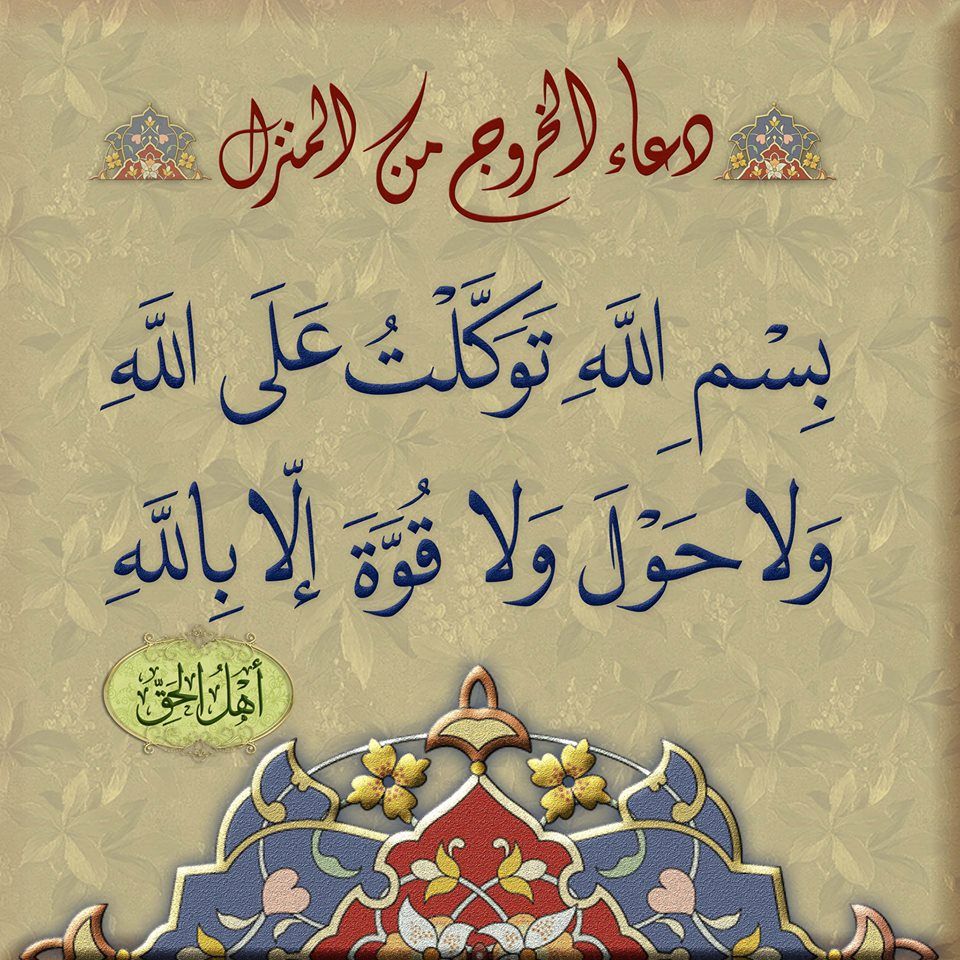 دعاء الخروج من المنزل
بِسْمِ اللَّهِ تَوَكَّلْتُ عَلَى اللَّهِ
وَلا حَوْلَ وَلا قُوَّةَ إلّا بِاللَّهِ
أهْلُ الحَقِّ